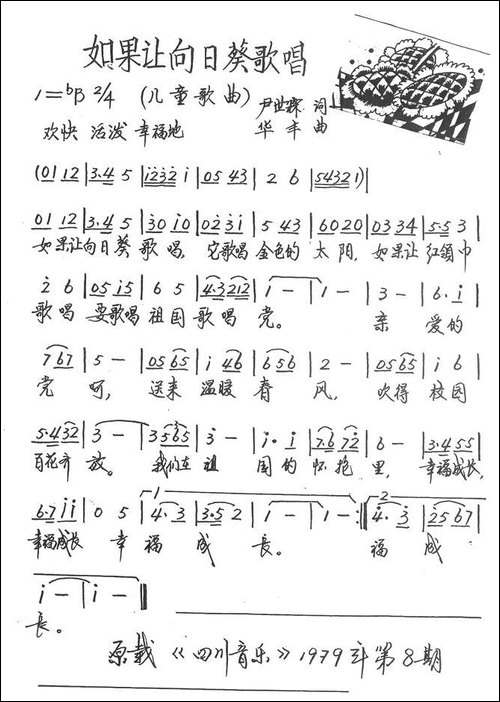 如果让向日葵歌唱
1=ᵇB 2/4 (儿童歌曲) 尹世霖 词
欢快 活泼 幸福地 华丰 曲
(01 12 | 3·4 5 | i232 i | 05 43 | 2 6 | 54321) |
01 12 | 3·4 5 | 30 i0 | 02 3i | 5 43 | 6020 | 03 34 | 5·5 3 |
如果让向日葵 歌 唱, 它歌唱 金色的 太 阳, 如果让 红领巾
2 6 | 05 i5 | 6 5 | 4·3 212 | i — | i — | 3 — | 6· i |
歌唱 要歌唱 祖国 歌唱 党。 亲 爱的
7 67 | 5 — | 05 65 | i 46 | 6 56 | 2 — | 05 65 | i 6 |
党 呵, 送来 温暖 春 风, 吹得 校园
5·4 32 | 3 — | 35 65 | 3 — | i· i | 7·6 72 | 6 — | 3·4 55 |
百花齐 放。 我们在 祖 国的 怀抱 里, 幸福成长,
6·7 ii | 0 5 | 1 4· 3 | 3·5 2 | i — | i — :‖ 2 4· 3 | 25 67 |
幸福成长 幸 福 成 长。 福 成
i — | i — ‖
长。
原载《四川音乐》1979年第8期